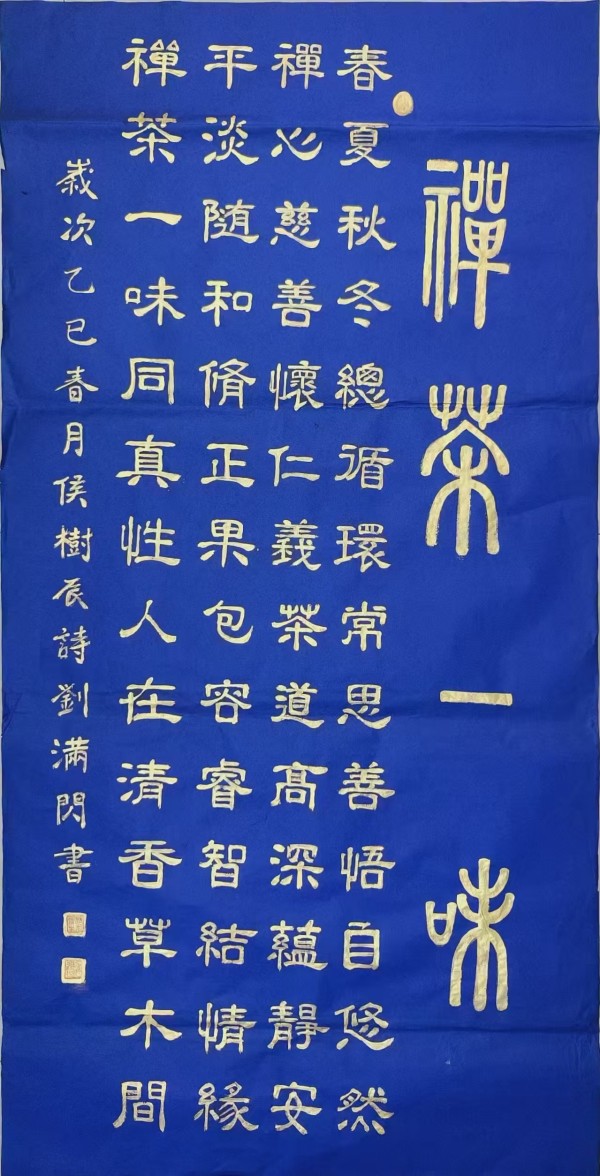 禪茶一味
春夏秋冬總循環常思善悟自悠然
禪心慈善懷仁義茶道高深蘊靜安
平淡随和脩正果包容睿智結情緣
禪茶一味同真性人在清香草木間
嵗次乙巳春月侯樹辰詩劉滿閃書